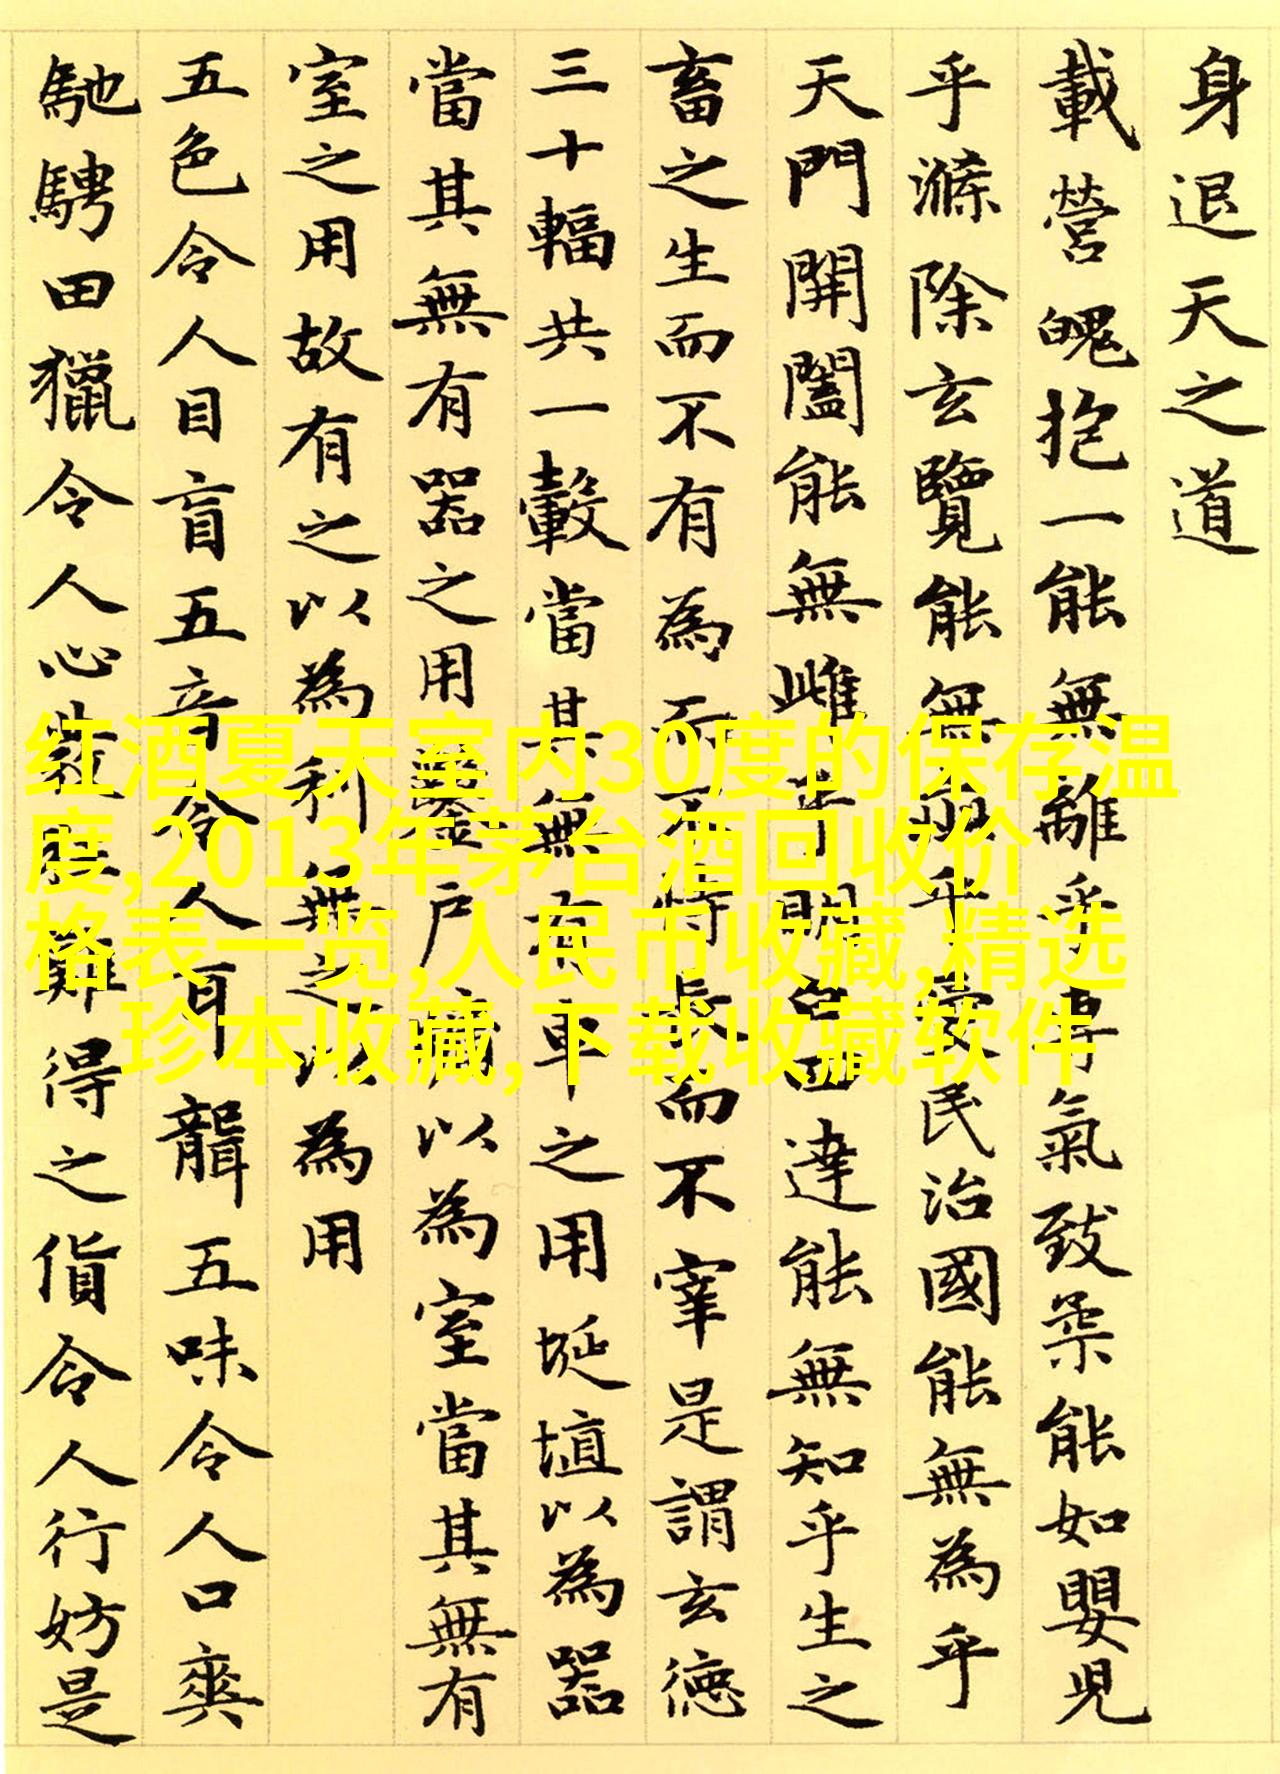 身退天之道
載營魄抱一能無離乎專氣致柔能如嬰兒
乎滌除玄覽能無疵乎愛民治國能無為乎
天門開闔能無雌乎明白四達能無知乎生之
畜之生而不有為而不恃長而不宰是謂玄德
三十輻共一轂當其無有車之用埏埴以為器
當其無有器之用鑿戶牖以為室當其無有
室之用故有之以為利無之以為用
五色令人目盲五音令人耳聾五味令人口爽
馳騁田獵令人心發狂難得之貨令人行妨是
红酒夏天室内30度的保存温
度,2013年茅台酒回收价
格表一览,人民币收藏,精选
珍本收藏,下载收藏软件